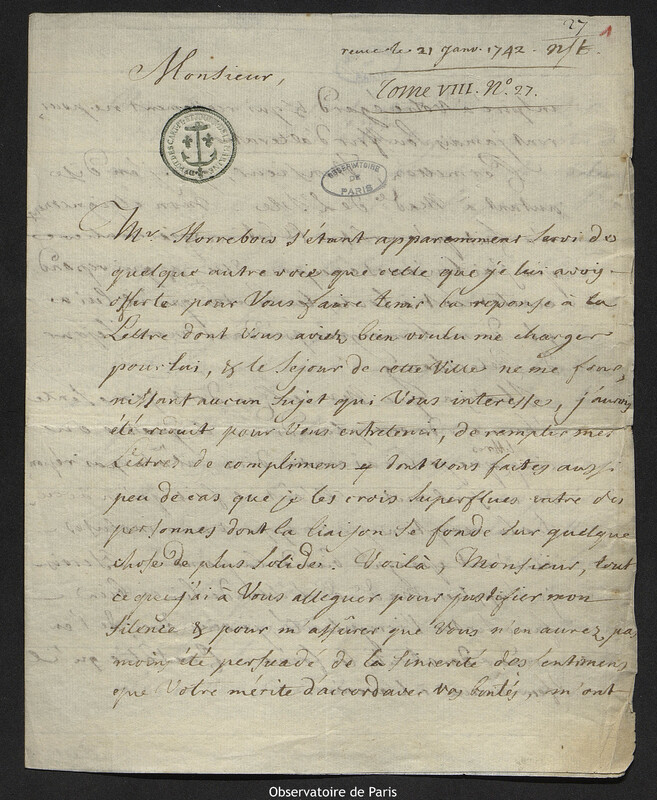 27
1
receu le 21 Janv. 1742. n/st.
Monsieur,
Tome VIII. N.º 27.
DEPOT DES CARTES PLANS ET JOURNAUX DE LA MARINE
OBSERVATOIRE
DE
PARIS
Mr. Horrebow s'étant apparemment servi de
quelque autre voie que celle que je lui avois
offerte pour Vous faire tenir la reponse à la
Lettre dont Vous aviez bien voulu me charger
pour lui, & le Sejour de cette Ville ne me four,
nissant aucun Sujet qui Vous interesse, j'aurois
été reduit pour Vous entretenir, de remplir mes
Lettres de complimens dont Vous faites aussi
peu de cas que je les crois Superflues entre des
personnes dont la liaison Se fonde Sur quelque
chose de plus Solide. Voilà, Monsieur, tout
ce que j'ai à Vous alleguer pour justifier mon
Silence & pour m'assûrer que Vous n'en aurez pas
moins été persuadé de la Sincerité des Sentimens
que Votre mérite d'accord avec Vos bontés, m'ont
Observatoire de Paris